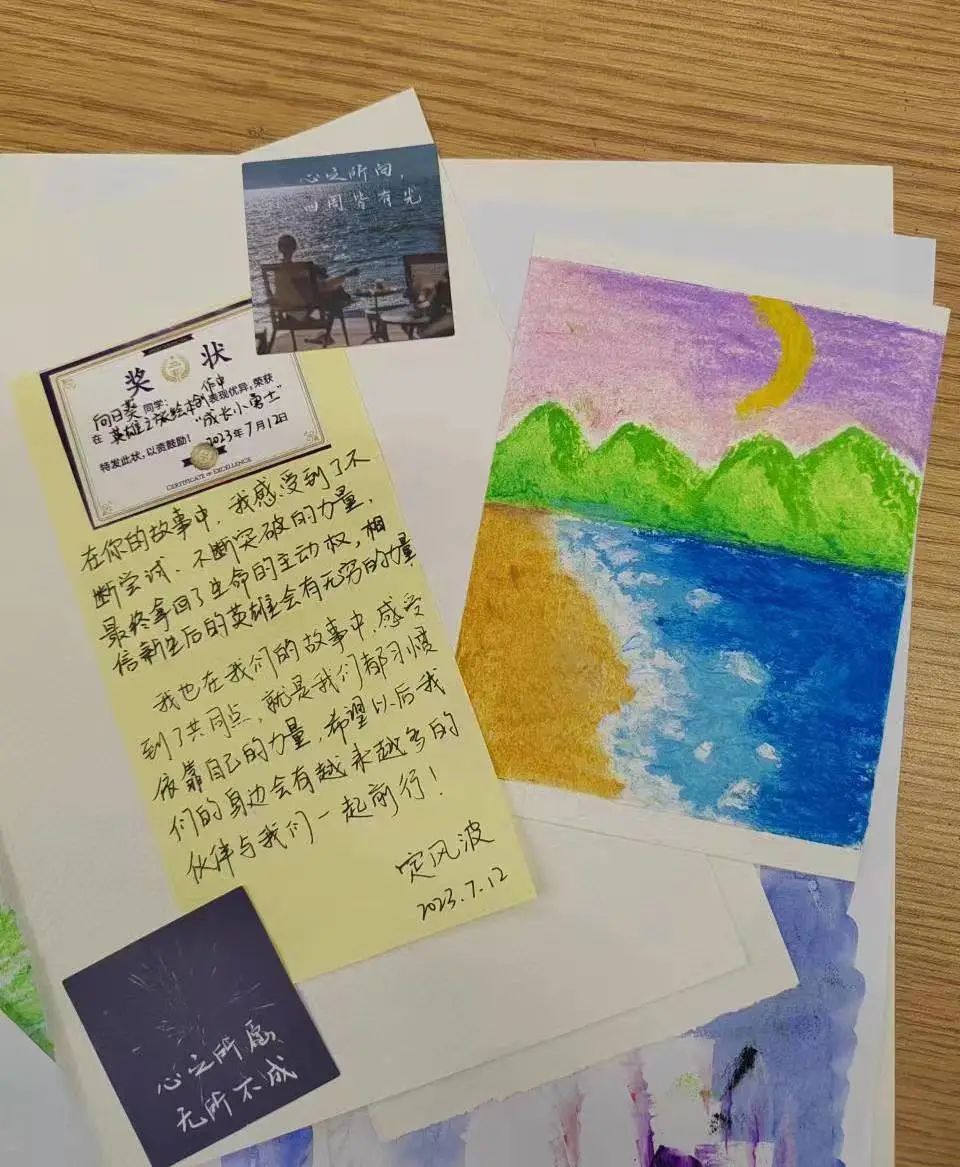 心之所向，
四周皆有光
奖 状
向日葵同学：
在 英雄之旅绘本创作中 表现优异，荣获
“成长小勇士”
特发此状，以资鼓励！
2023年7月12日
CERTIFICATE OF EXCELLENCE
在你的故事中，我感受到了不
断尝试、不断突破的力量，
最终拿回了生命的主动权，相
信新生后的英雄会有无穷的力量
我也在我们的故事中，感受
到了共同点，就是我们都习惯
依靠自己的力量，希望以后我
们的身边会有越来越多的
伙伴与我们一起前行！
定风波
2023.7.12
心之所愿
无所不成